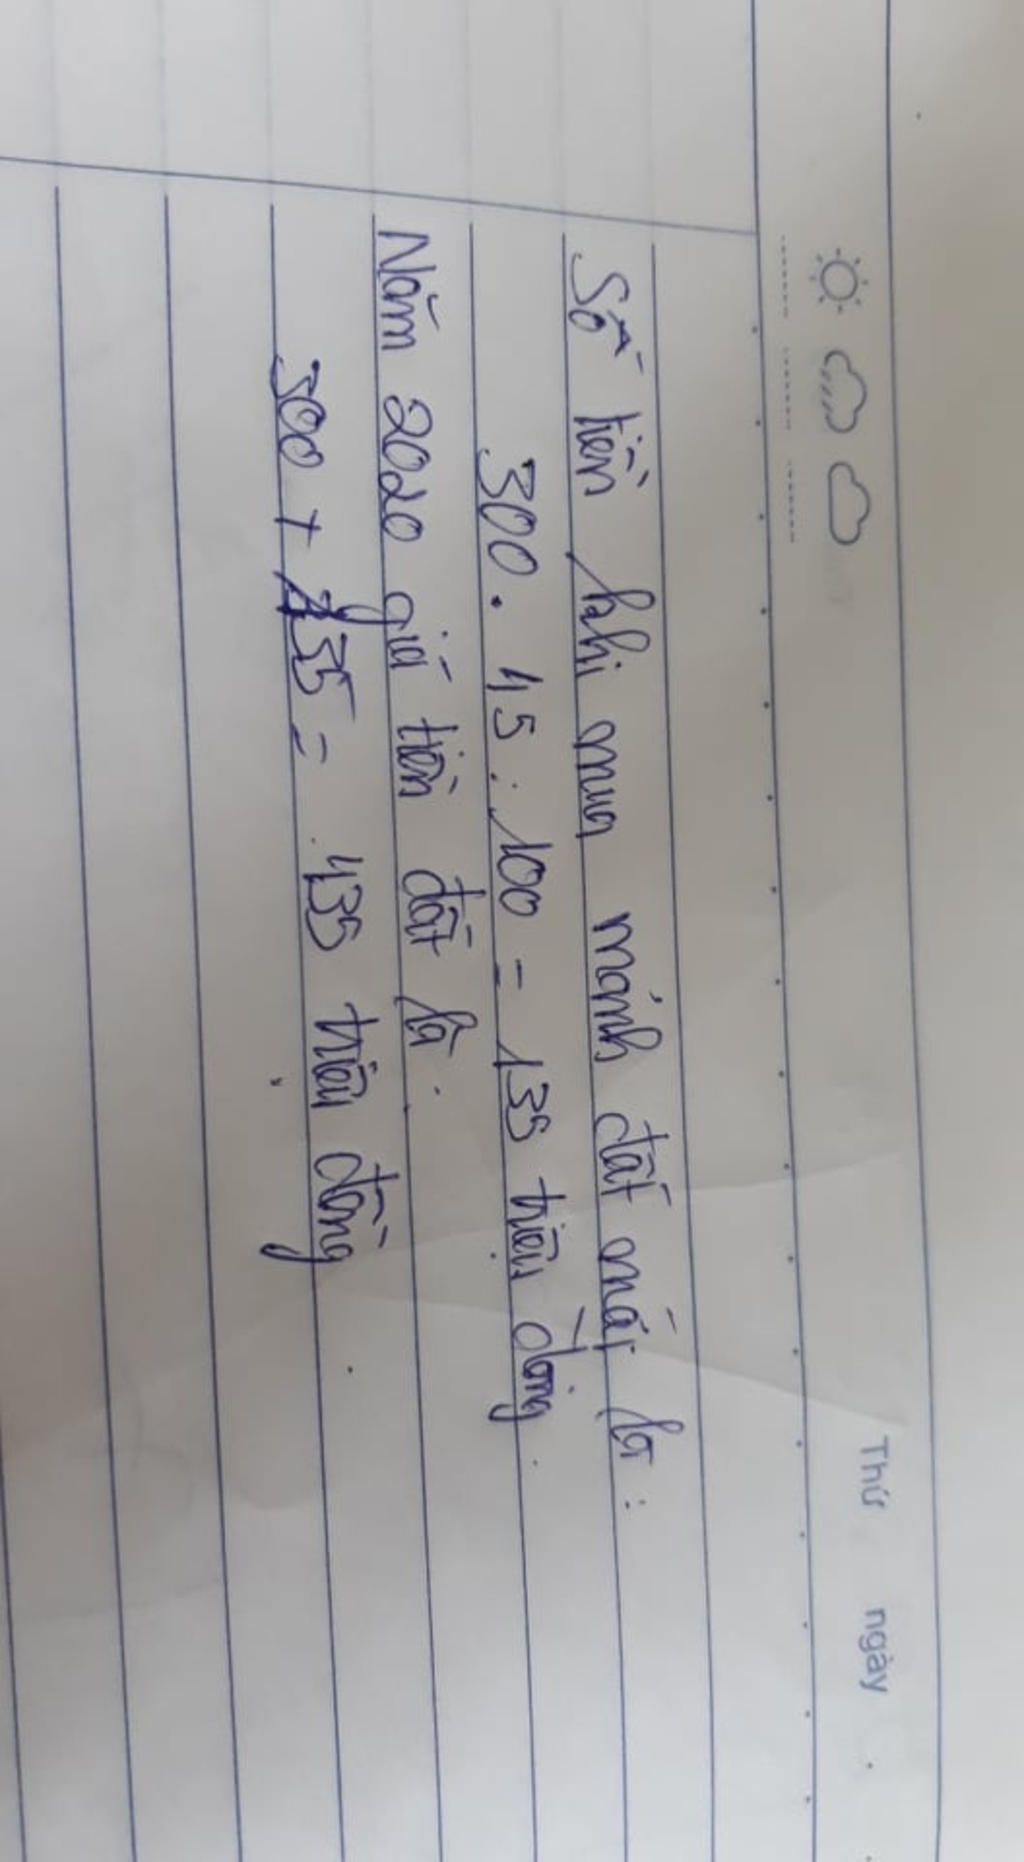 Thứ ngày
Số tiền khi mua mảnh đất mới là:
300. 45 : 100 = 135 triệu đồng.
Năm 2020 giá tiền đất là:
300 + 135 = 435 triệu đồng